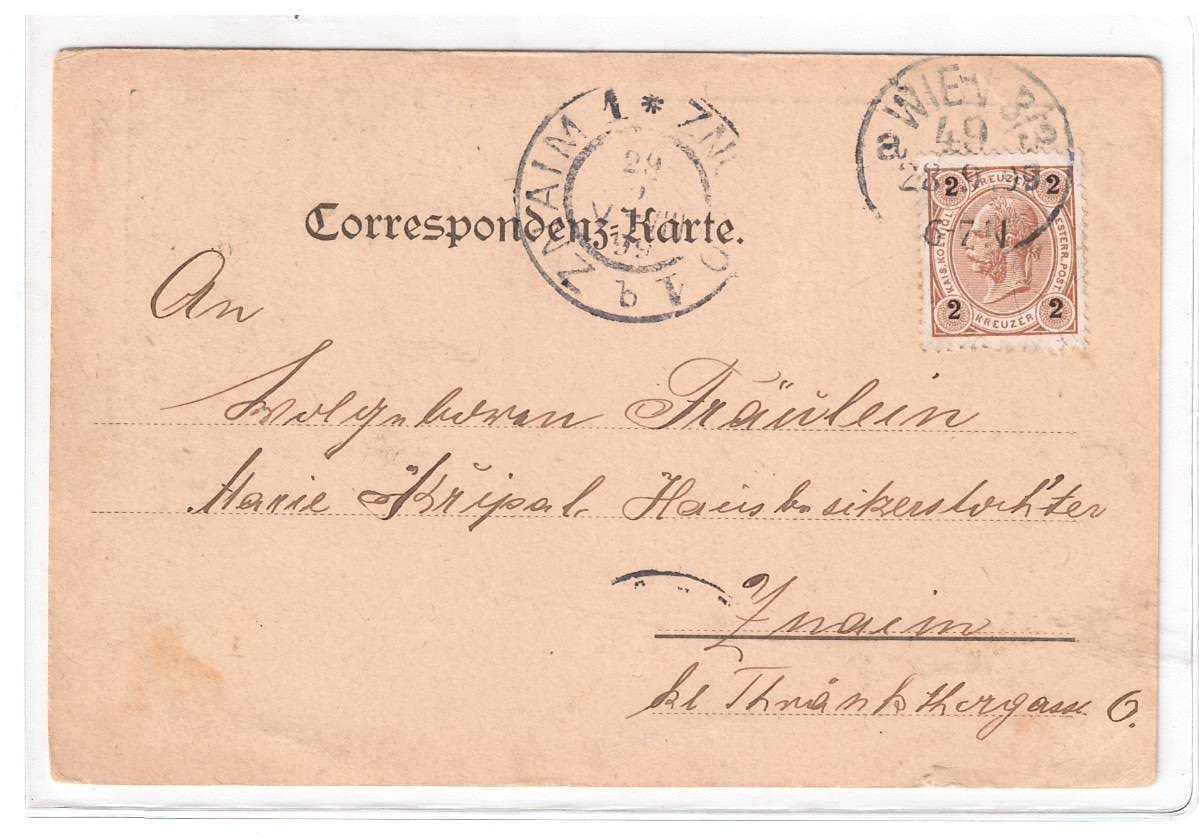 WIEN 3/3
49
a
28. 9. 99
6-7 N
ZNAIM 1 * ZN
29
99
2 KREUZER 2
KAIS. KOENIGL. OESTERR. POST.
2 KREUZER 2
Correspondenz-Karte.
An
Wolgeboren Fräulein
Marie Křipal Hausbesikerstochter
Znaim
kl Thränkthorgasse 6.